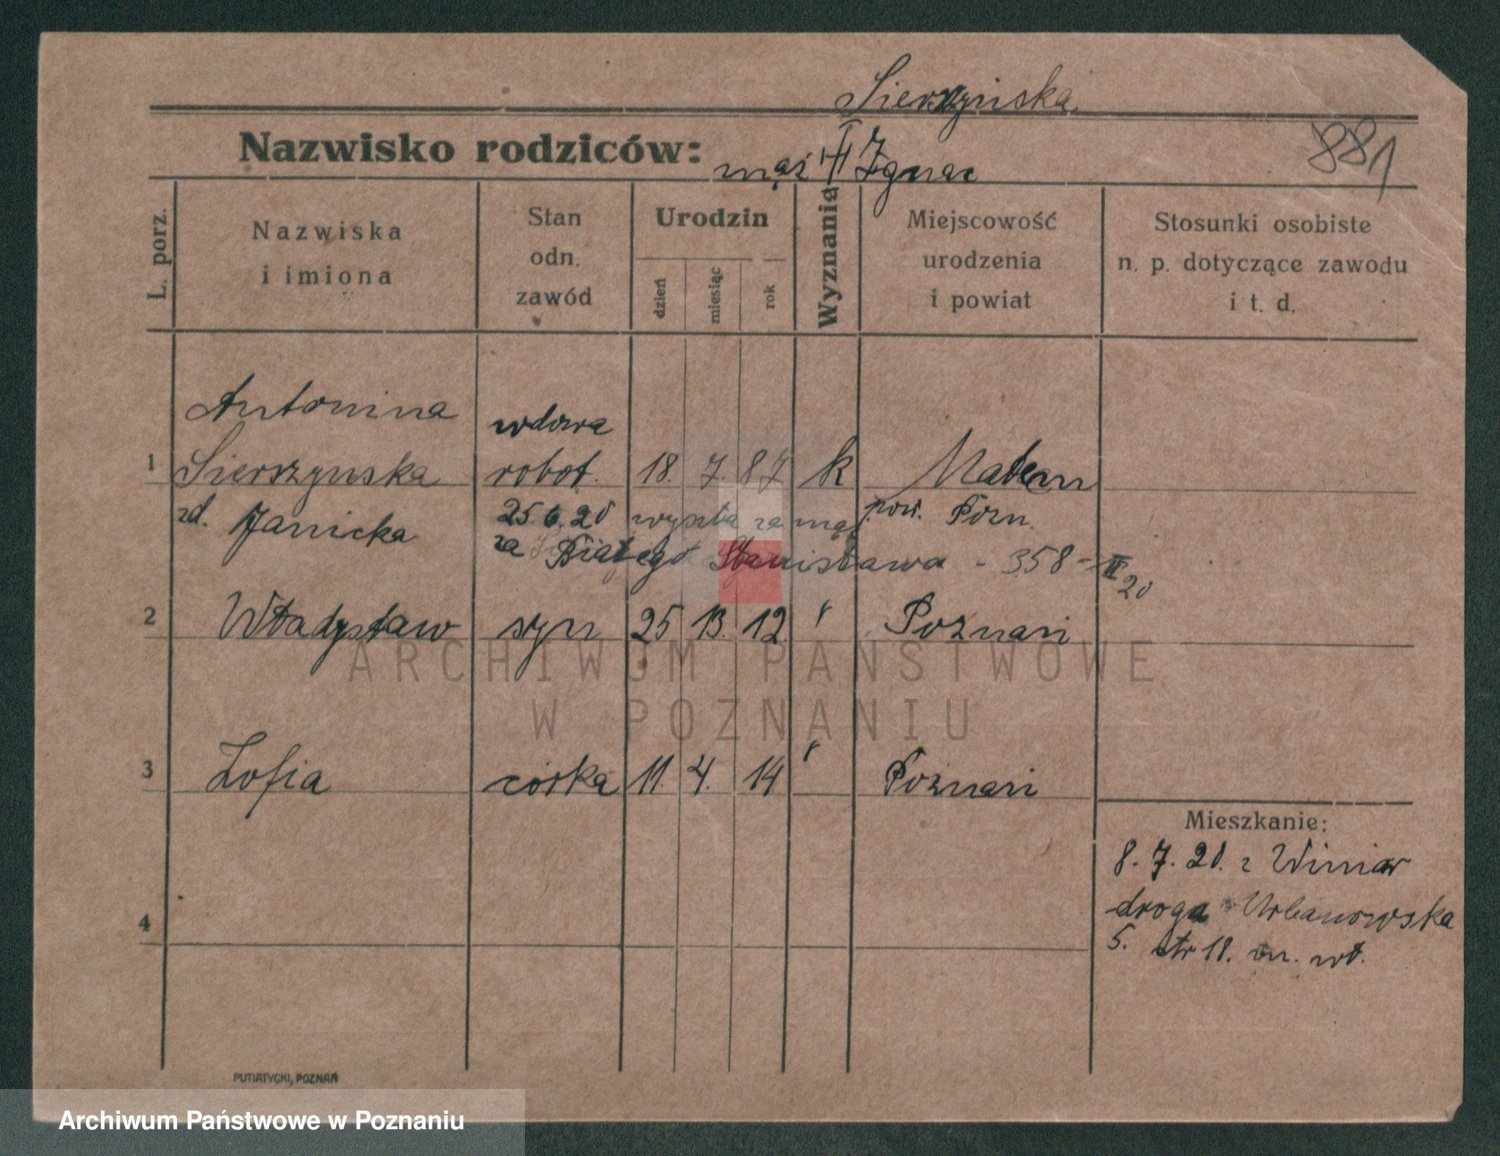 Sierszyńska
881
Nazwisko rodziców: mąż † Ignac
L. porz.
Nazwiska i imiona
Stan odn. zawód
Urodzin
dzień
miesiąc
rok
Wyznania
Miejscowość urodzenia i powiat
Stosunki osobiste n. p. dotyczące zawodu i t. d.
Antonina wdowa
1 Sierszyńska robot. 18. 7. 87 k
zd. Janicka 25 6. 20 wyszła za mąż pow. Pozn.
za Białego Stanisława - 358 - II 20
2 Władysław syn 25 12 Poznań
ARCHIWUM PAŃSTWOWE
W POZNANIU
3 Zofia córka 11. 4. 14 Poznań
Mieszkanie:
8. 7. 20. z Winiar
droga Urbanowska
4
5. str 18. m. wł.
PUTIATYCKI, POZNAŃ
Archiwum Państwowe w Poznaniu